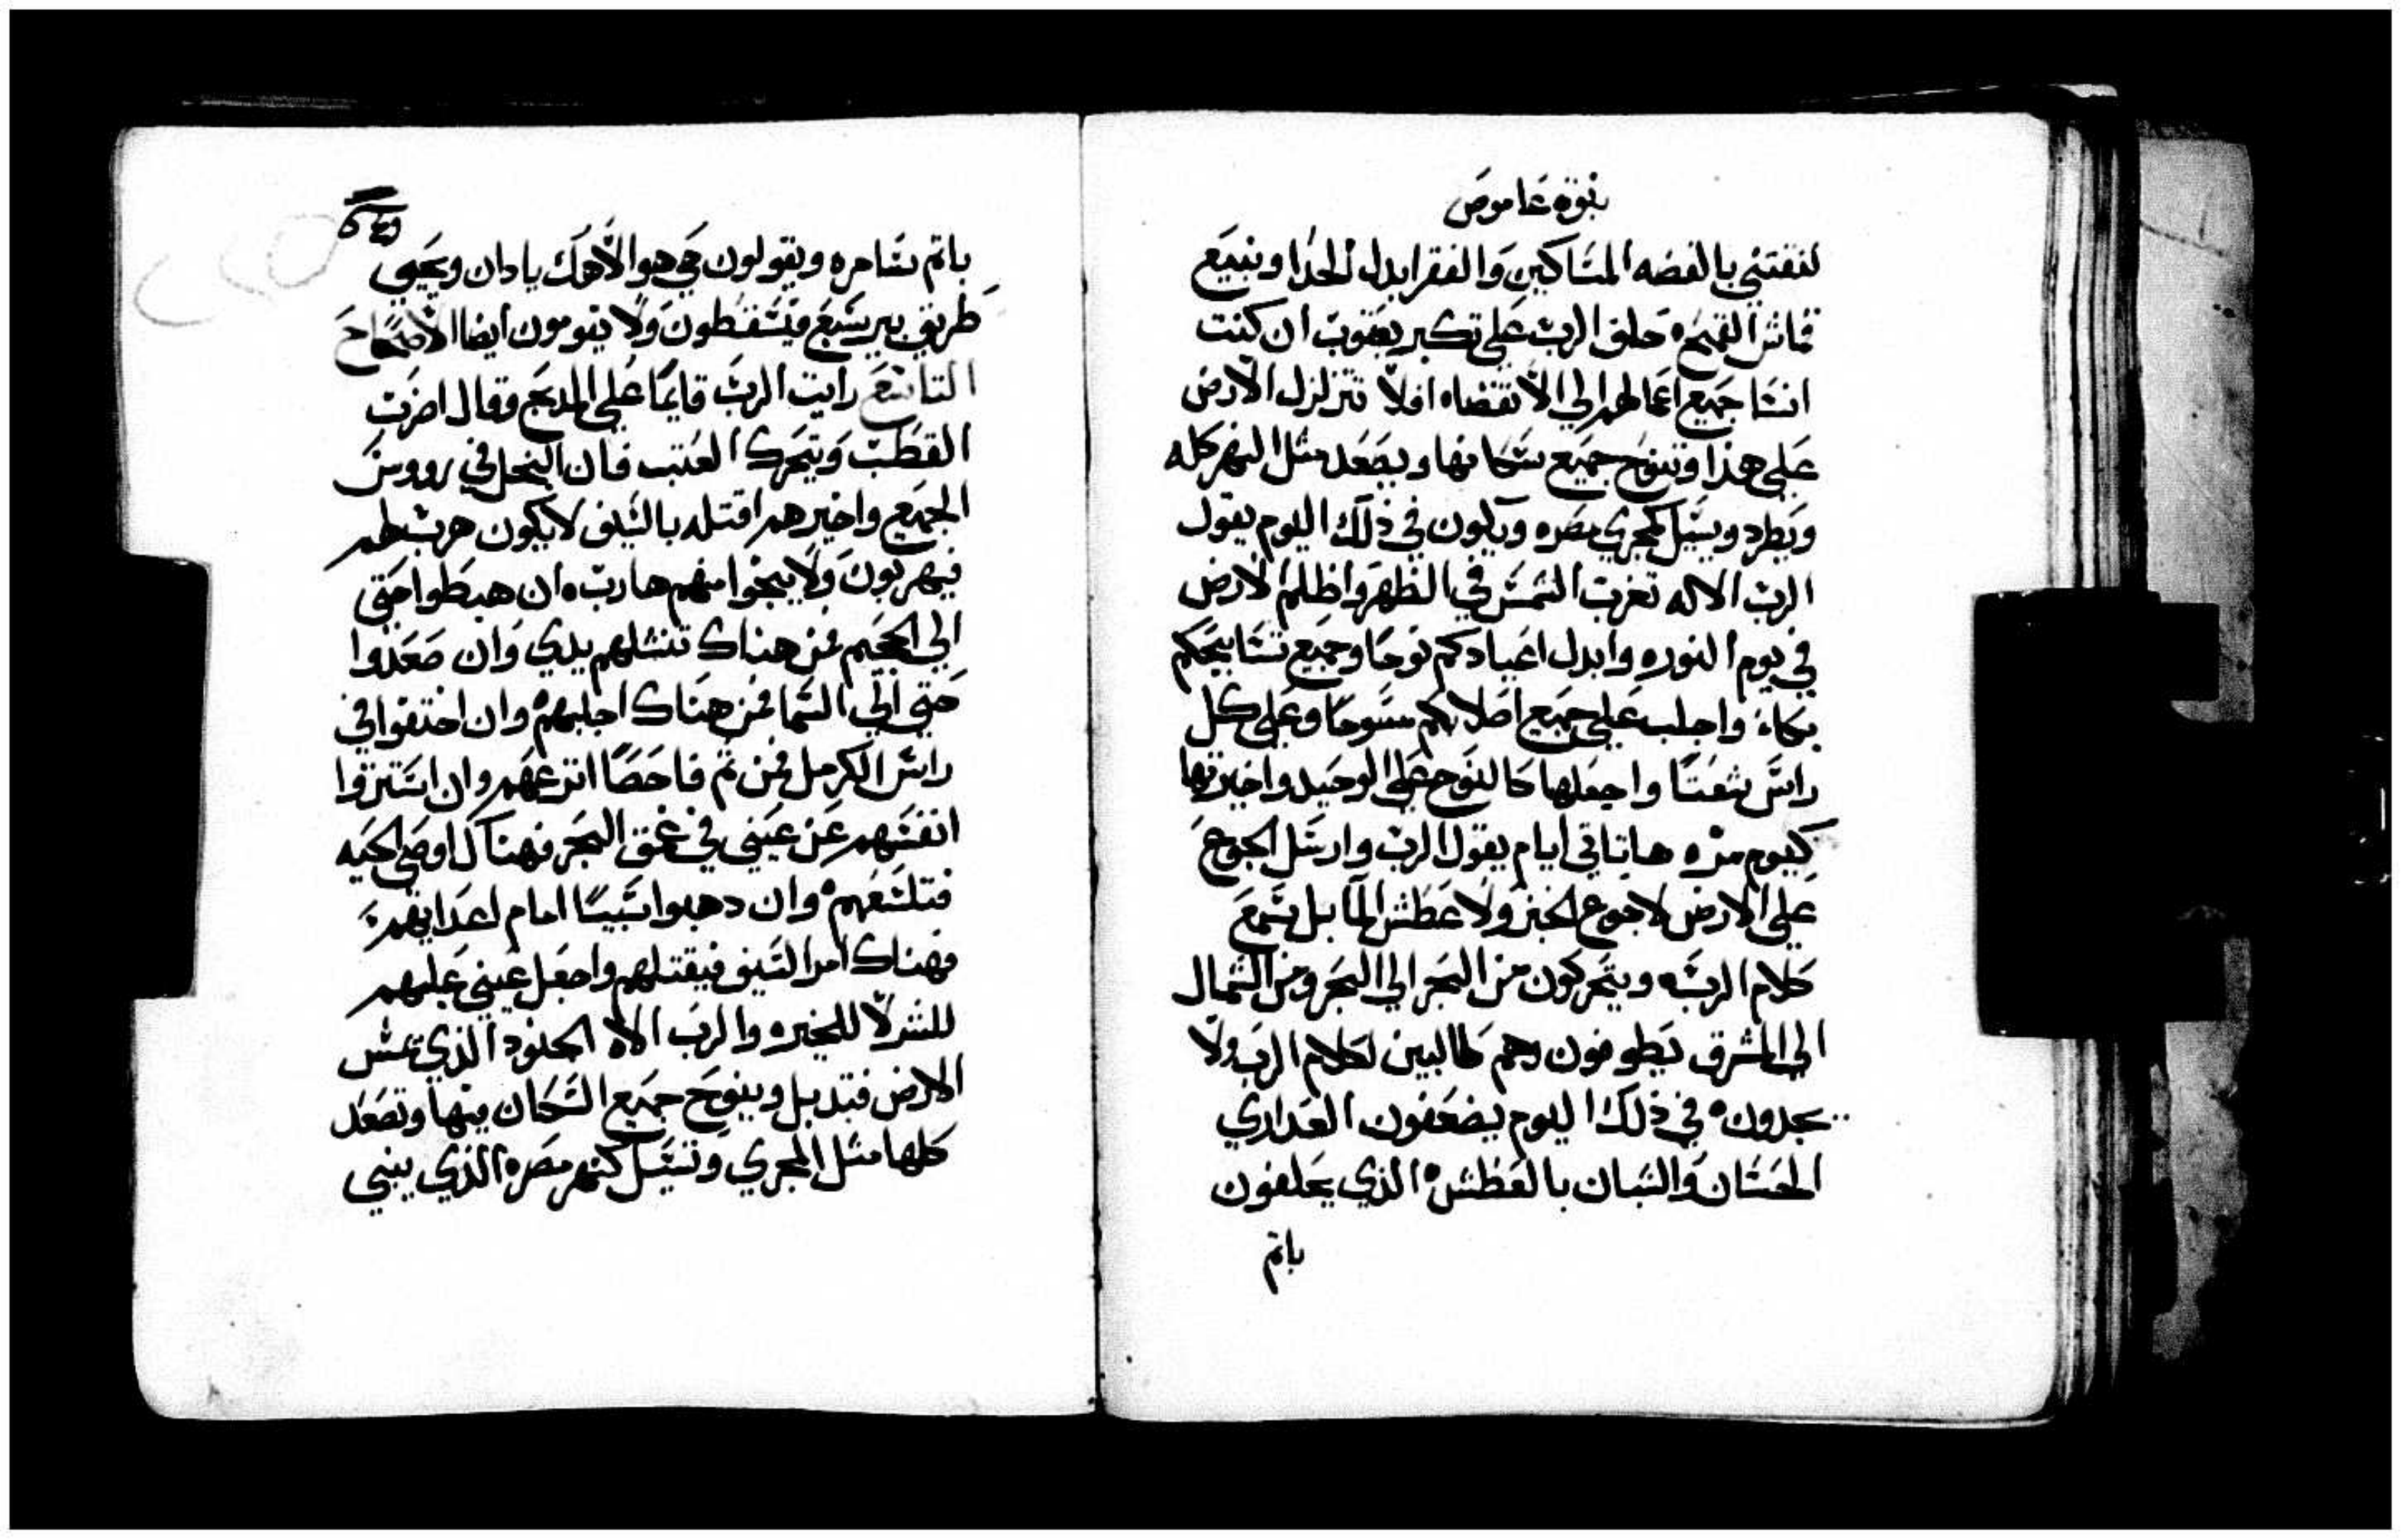 نبوة عاموص
لنقتني بالفضه المساكين والفقرا بدل الحدا ونبيع
قماش القمح ه حلف الرب علي تكبر يعقوب ان كنت
انسا جميع اعمالهم الي الانقضاه افلا تتزلزل الارض
علي هذا وتنوح جميع سكانها ويصعد مثل النهر كله
ويطرد ويسيل كمجري مصره ويكون في ذلك اليوم يقول
الرب الاله تغرب الشمس في الظهر واظلم الارض
في يوم النوره وابدل اعيادكم نوحا وجميع تسابيحكم
بكاء واجلب علي جميع اصلابكم مسوحا وعلي كل
راس شعثا واجعلها كالنوح علي الوحيد واخيرتها
كيوم مره ها تاتي ايام يقول الرب وارسل الجوع
علي الارض لا جوع الخبز ولا عطش الما بل تسمع
كلام الرب ه ويتحركون من البحر الي البحر ومن الشمال
الي المشرق يطوفون وهم طالبين لكلام الرب ولا
يجدون ه في ذلك اليوم يضعفون العداري
الحسان والشبان بالعطش ه الذي يحلفون
باثم
باثم سامره ويقولون حي هو الاهك يا دان ويحيي
طريق بيرسبع فيسقطون ولا يقومون ايضا الاصحاح
التاسع رايت الرب قايما علي المدبح وقال اضرب
القطب ويتحرك العتب فان البخل في رووس
الجميع واخيرهم اقتله بالسيف لا يكون هرب لهم
فيهربون ولا ينجوا منهم هارب ه وان هبطوا حتي
الي الجحيم فمن هناك تنشلهم يدي وان صعدوا
حتي الي السما فمن هناك اجلبهم ه وان اختفوا في
راس الكرمل فمن ثم فاحصا انزعهم وان استتروا
انفسهم عن عيني في عمق البحر فهناك اوصي الحيه
فتلسعهم ه وان دهبوا سبيا امام اعدايهم
فهناك امر السيف فيقتلهم واجعل عيني عليهم
للشر لا للخيره والرب الاه الجنود الذي يمس
الارض فتدبل وينوح جميع السكان فيها وتصعد
كلها مثل المجري وتسيل كنهر مصره الذي يبني